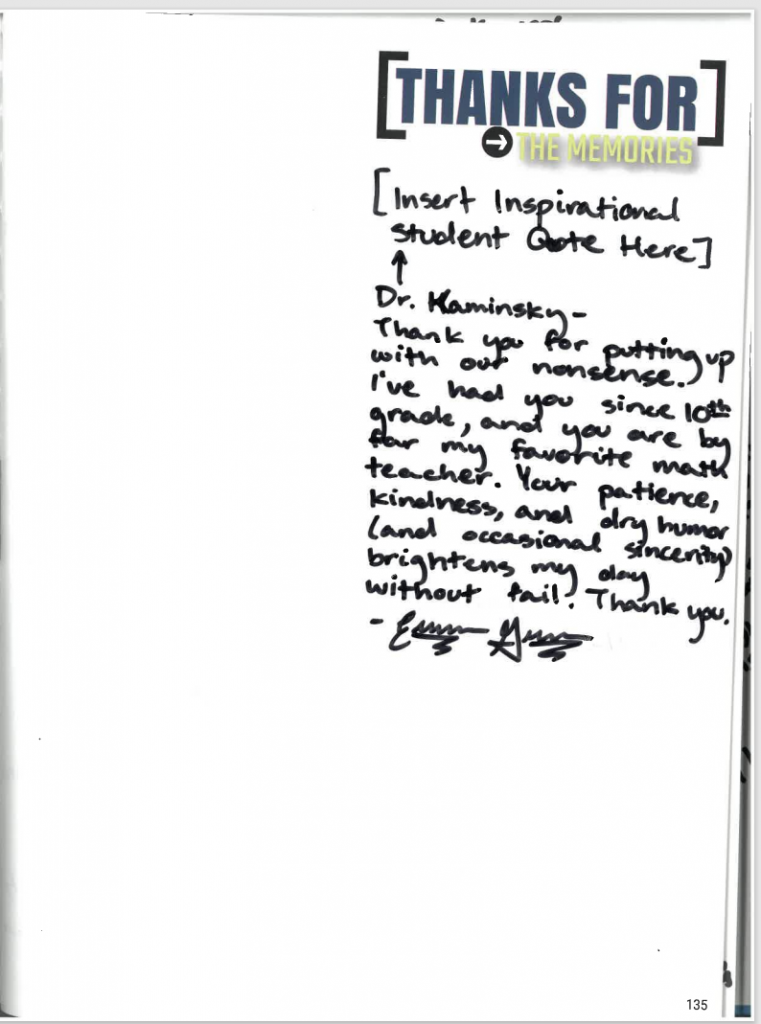 [THANKS FOR]
THE MEMORIES
[Insert Inspirational
student Quote Here]
Dr. Kaminsky-
Thank you for putting up
with our nonsense.
I've had you since 10th
grade, and you are by
far my favorite math
teacher. Your patience,
kindness, and dry humor
(and occasional sincerity)
brightens my day
without fail. Thank you.
135